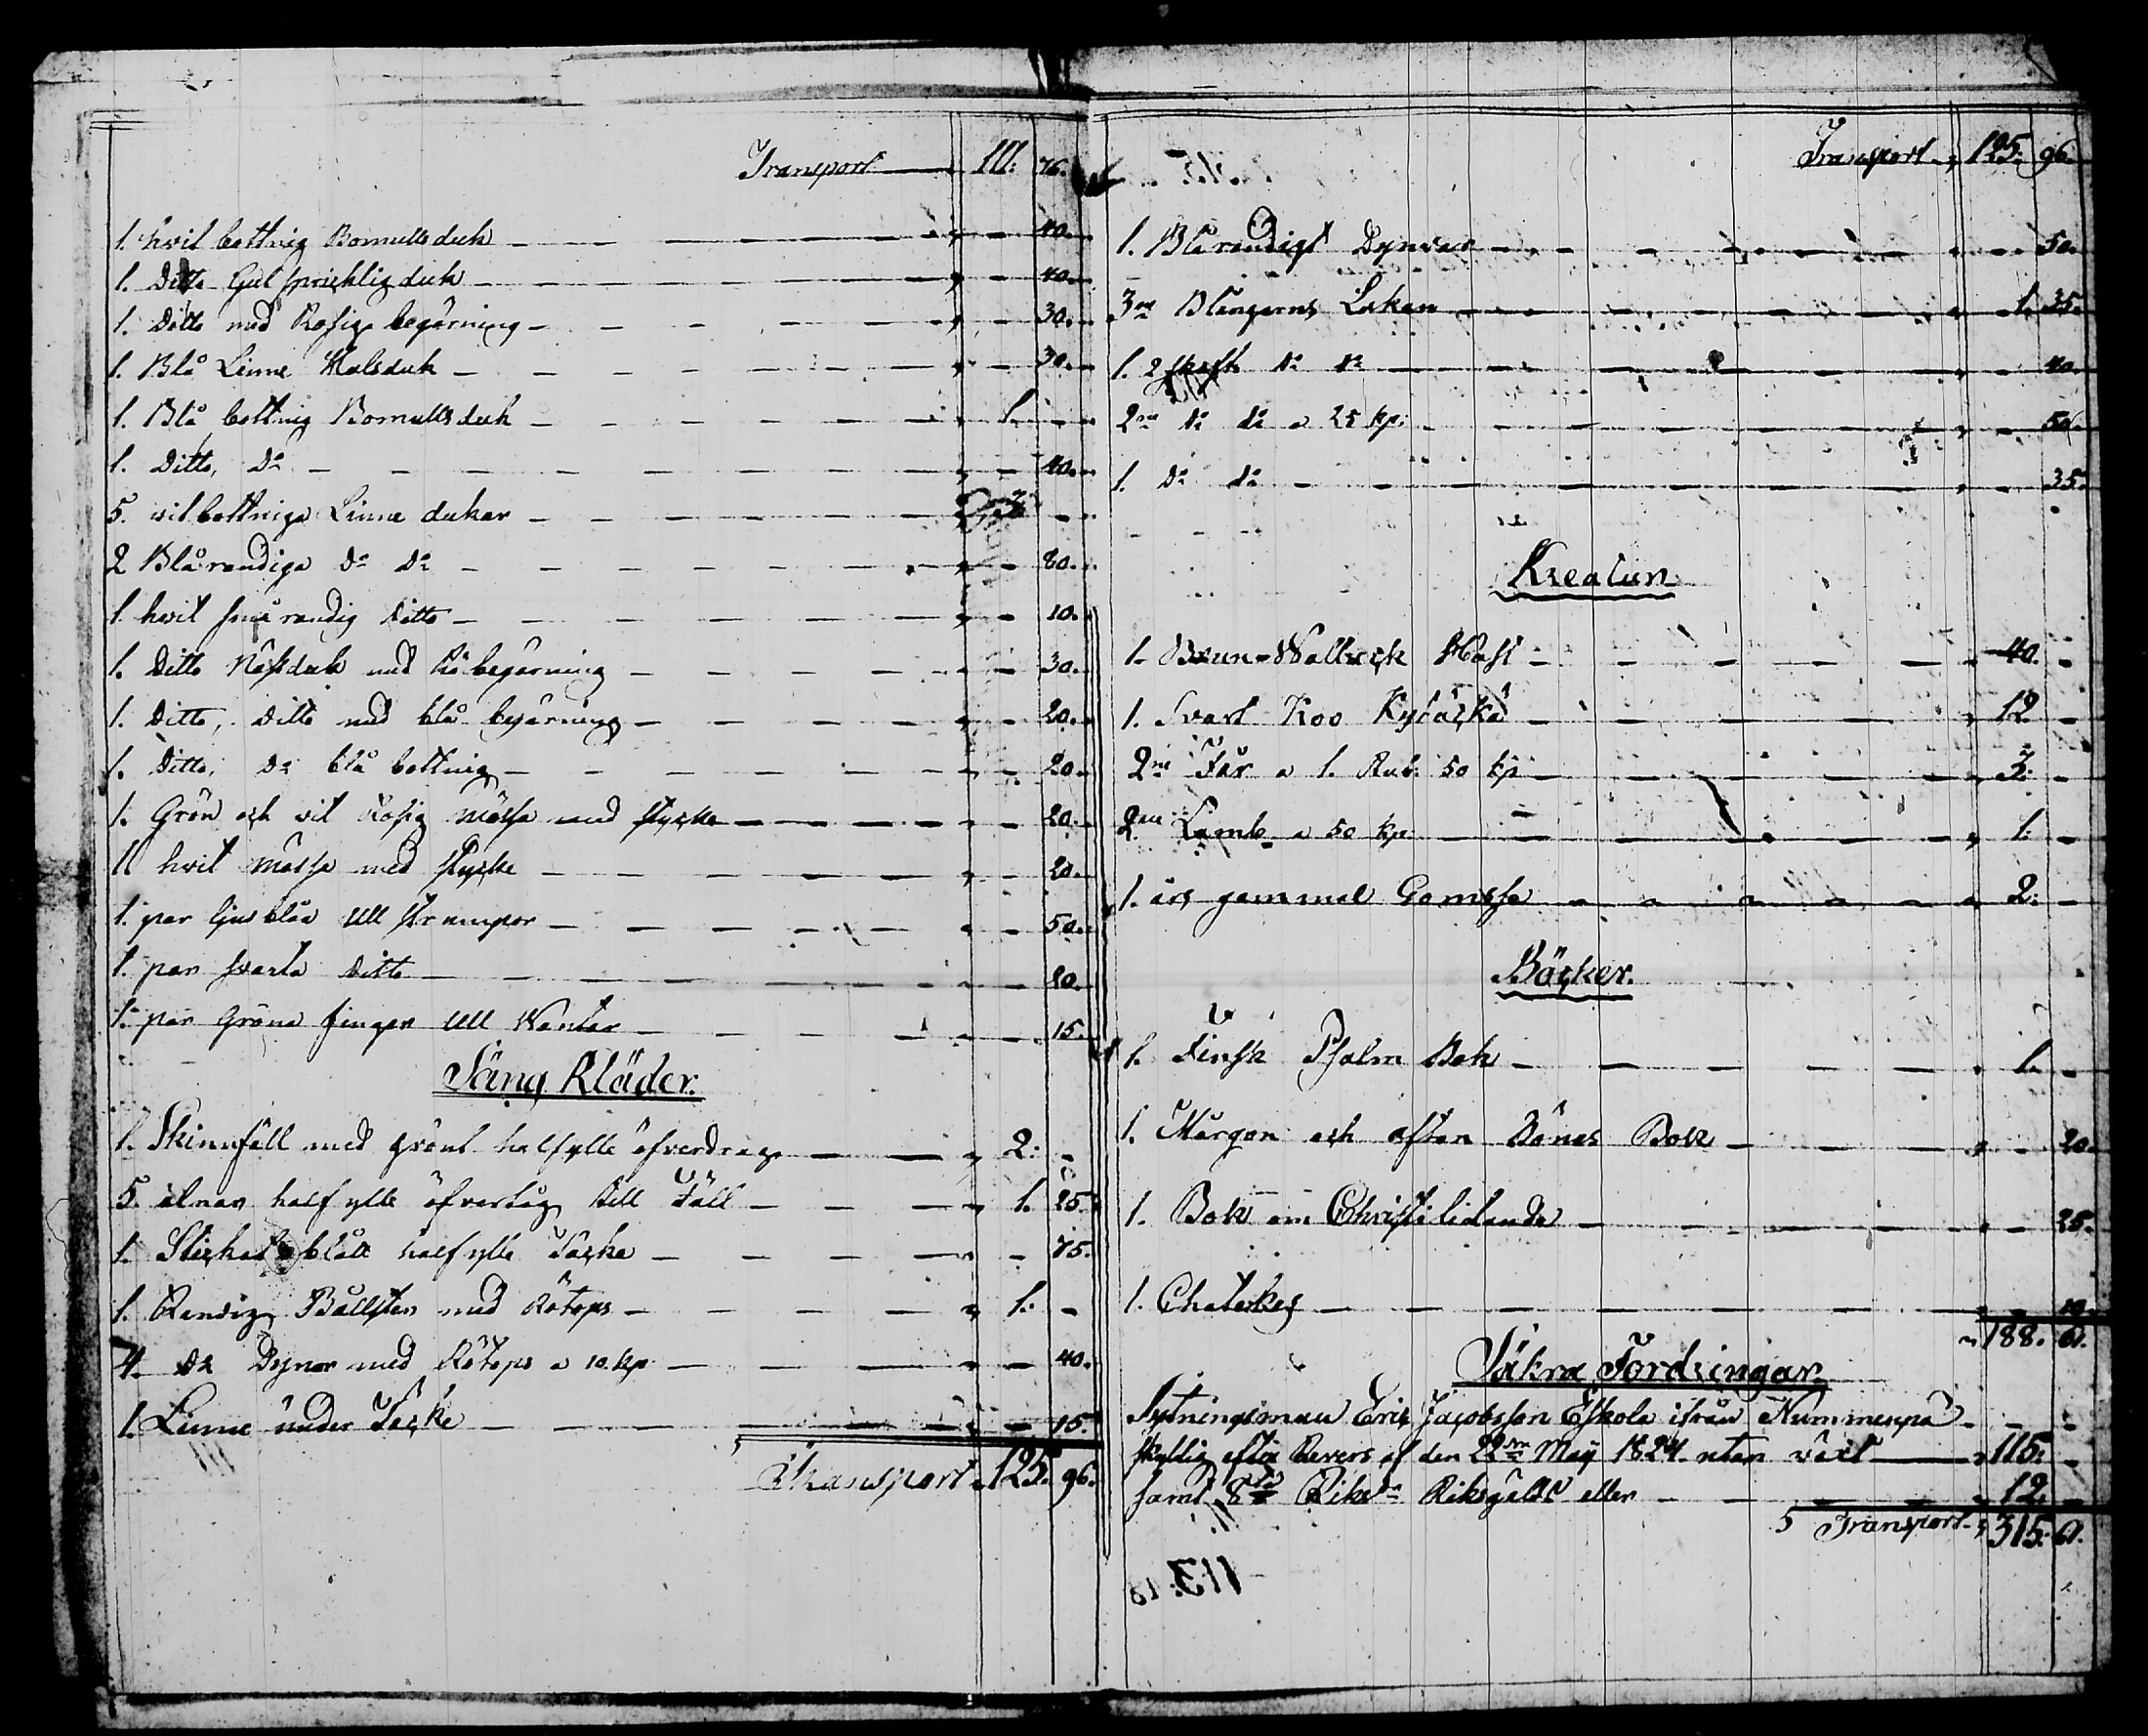 Transport „ 111. 76.
1. hvit bottnig Bomulls duk „ 40.
1. Ditto Gul spricklig duk „ 40.
1. Ditto med Rosig begärning „ 30.
1. Blå Linne Halsduk „ 30.
1. Blå bottnig Bomulls duk „ 1.
1. Ditto, Do „ 40.
5. vit bottniga Linne dukar
2 Blå randiga Do Do „ 80.
1. hvit små randig Ditto „ 10.
1. Ditto Näsduk med Rö begärning „ 30.
1. Ditto, Ditto med blå begärning „ 20.
1. Ditto, Do blå bottnig „ 20.
1. Grön och vit Rosig Mössa med stycke „ 20.
1 hvit Mössa med stycke „ 20.
1. par ljusblåa Ull strumpor „ 50.
1. par svarta Ditto „ 20.
1. par Gröna finger Ull Wantar „ 15.
Säng Kläder.
1. Skinnfäll med grönt halfylle öfverdrag „ 2:
5. alnar half ylle öfvertåg till Fäll „ 1. 25.
1. Stickat blått half ylle Täcke „ 75.
1. Randig Bållster med Rötops „ 1.
4. Do Dynor med Rötops a 10. kp „ 40.
1. Linne under Täcke „ 15.
Transport „ 125. 96.
Transport „ 125. 96.
1. Blårandigt Dynvar „ 50.
3ne Blångarns Lakan „ 1. 35.
1. 2 skaft do do „ 40.
2ne do do a 25 kp: „ 50.
1. Do do „ 35.
Kreatur
1. Brun Wallack Häst „ 40.
1. Svart Koo „ 12
2ne Får a 1. Rub: 50 kp „ 3.
2ne Lamb a 50 kp „ 1.
1. års gammal Gomsse „ 2:
Böcker.
1. Finsk Psalm Bok „ 1.
1. Morgon och afton Bönes Bok „ 20.
1. Bok om Christi lidande „ 25.
1. Chatekes „ 10.
„ 188. 61.
Säkra Fordringar
Sytningsman Eric Jacobsson Eskola ifrån Nummenpä
skyldig efter Revers af den 22ne Maij 1824. utan växt „ 115.
samt 8ta Riksdr Riksgälds eller „ 12.
Transport „ 315. 61.